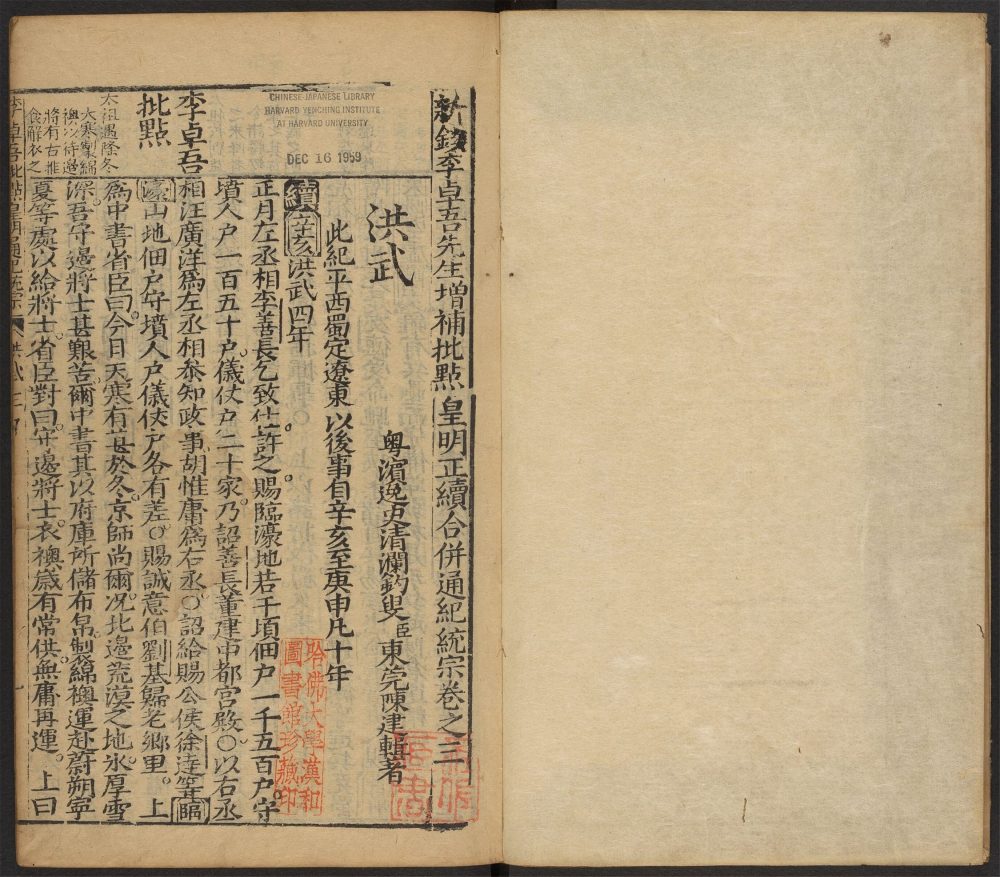 新鐫李卓吾先生增補批點皇明正續合併通紀統宗卷之三
粵濱逸史清瀾釣叟臣東莞陳建輯著
洪武
此紀平西蜀定遼東以後事自辛亥至庚申凡十年
續辛亥洪武四年
正月左丞相李善長乞致仕許之賜臨濠地若干頃佃户一千五百户守
墳人户一百五十户儀仗户二十家乃詔善長董建中都宫殿〇以右丞
相汪廣洋爲左丞相叅知政事胡惟庸爲右丞〇詔給賜公侯徐達等臨
濠山地佃户守墳人户儀仗户各有差〇賜誠意伯劉基歸老鄉里。上
爲中書省臣曰今日天寒有甚於冬京師尚爾况北邊荒漠之地氷厚雪
深吾守邊將士甚艱苦爾中書其以府庫所儲布帛製綿襖運赴蔚朔寧
夏等處以給將士省臣對曰守邊將士衣襖嵗有常供無庸再運。上曰
李卓吾
批點
太祖遇隆冬
大寒製綿
襖以待邊
將有古推
食解衣之
李卓吾批點皇明通紀統宗 洪武三
CHINESE-JAPANESE LIBRARY
HARVARD YENCHING INSTITUTE
AT HARVARD UNIVERSITY
DEC 16 1959
哈佛大學漢和
圖書館珍藏印